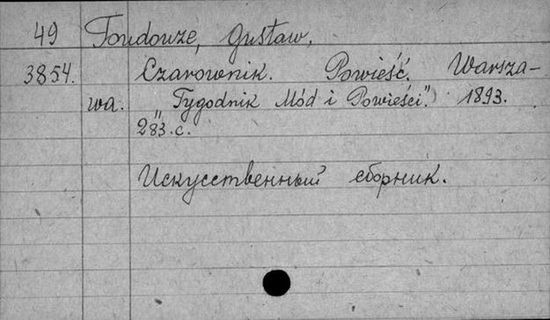 49 Toudouze, Gustaw.
3854. Czarownik. Powieść. Warsza-
wa. "Tygodnik Mód i Powieści". 1893.
283.c.
Искусственный сборник.